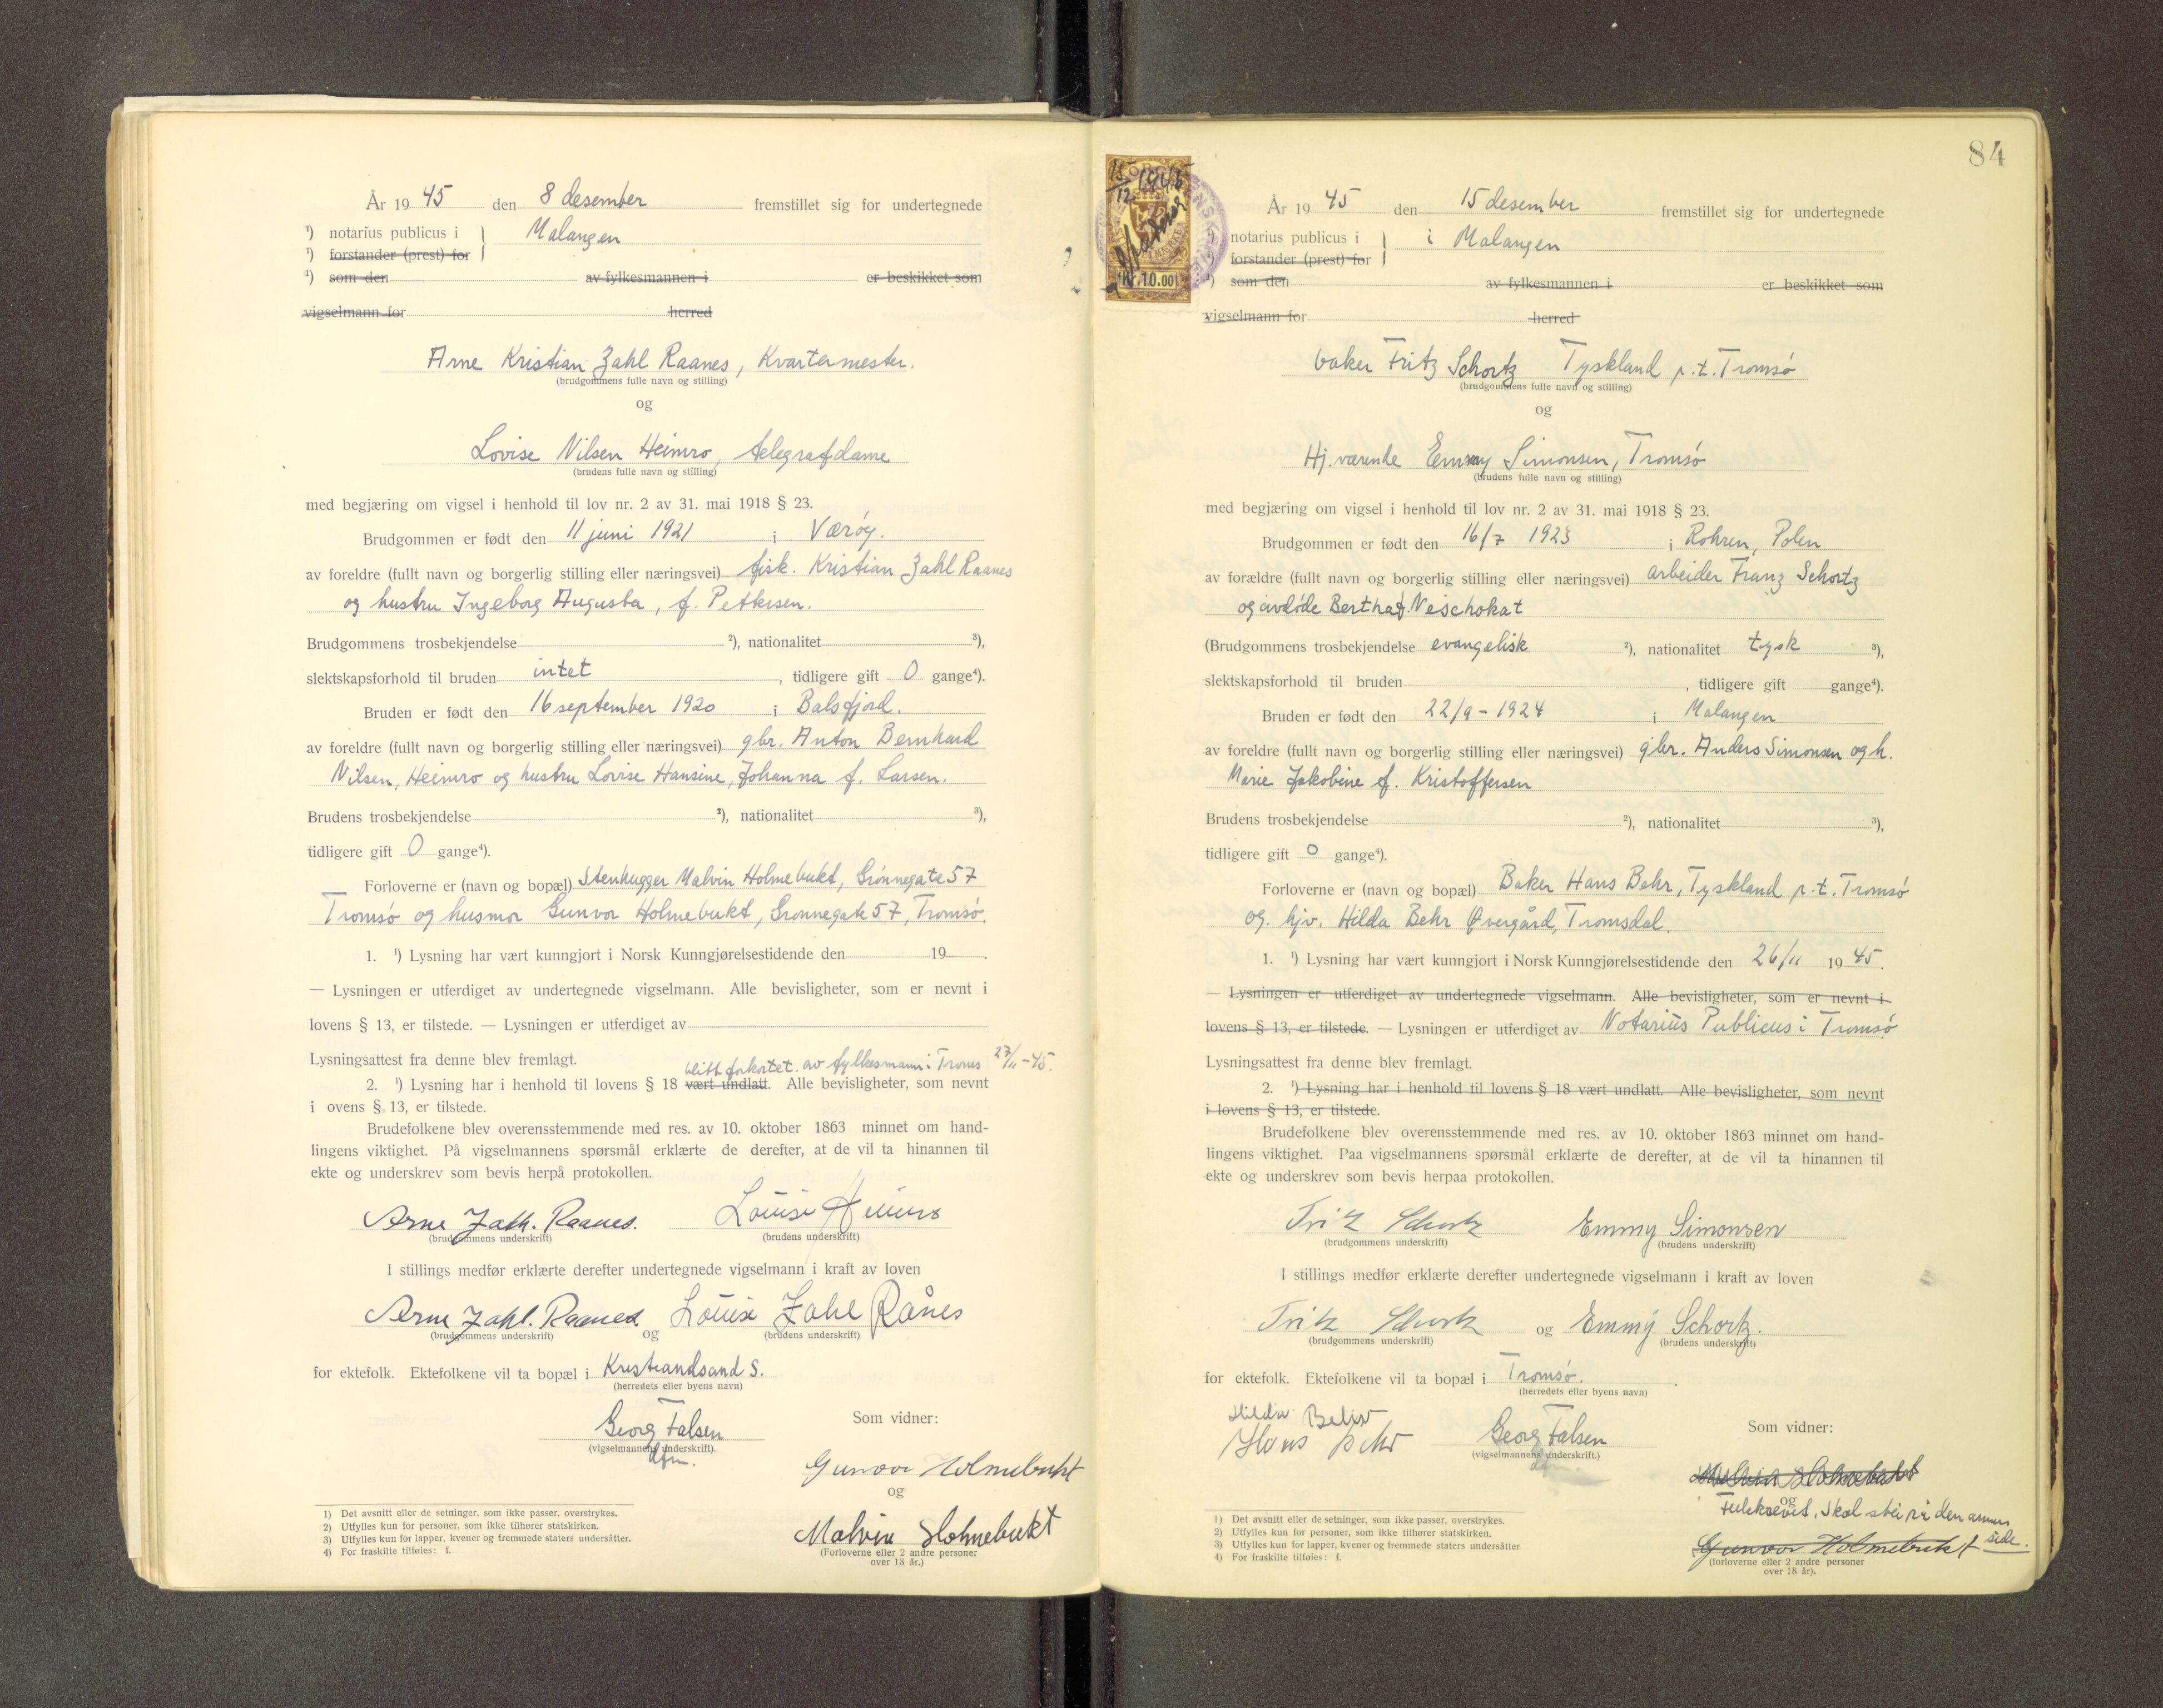 År 19 45 den 8 desember fremstillet sig for undertegnede
¹) notarius publicus i } Malangen
¹) forstander (prest) for
¹) som den av fylkesmannen i er beskikket som
vigselmann for herred
Arne Kristian Zahl Raanes, Kvartermester.
(brudgommens fulle navn og stilling)
og
Lovise Nilsen Heimro, telegrafdame
(brudens fulle navn og stilling)
med begjæring om vigsel i henhold til lov nr. 2 av 31. mai 1918 § 23.
Brudgommen er født den 11 juni 1921 i Værøy.
av foreldre (fullt navn og borgerlig stilling eller næringsvei) fisk. Kristian Zahl Raanes
og hustru Ingeborg Augusta, f. Pettersen.
Brudgommens trosbekjendelse ²), nationalitet ³),
slektskapsforhold til bruden intet, tidligere gift 0 gange⁴).
Bruden er født den 16 september 1920 i Balsfjord.
av foreldre (fullt navn og borgerlig stilling eller næringsvei) gbr. Anton Bernhard
Nilsen, Heimro og hustru Lovise Hansine, Johanna f. Larsen.
Brudens trosbekjendelse ²), nationalitet ³),
tidligere gift 0 gange⁴).
Forloverne er (navn og bopæl) Stenhugger Malvin Holmebukt, Grønnegate 57
Tromsø og husmor Gunvor Holmebukt, Grønnegate 57, Tromsø.
1. ¹) Lysning har vært kunngjort i Norsk Kunngjørelsestidende den 19 .
— Lysningen er utferdiget av undertegnede vigselmann. Alle bevisligheter, som er nevnt i
lovens § 13, er tilstede. — Lysningen er utferdiget av
Lysningsattest fra denne blev fremlagt.
blitt forkortet av fylkesmann i Troms 27/11-45.
2. ¹) Lysning har i henhold til lovens § 18 vært undlatt. Alle bevisligheter, som nevnt
i ovens § 13, er tilstede.
Brudefolkene blev overensstemmende med res. av 10. oktober 1863 minnet om hand-
lingens viktighet. På vigselmannens spørsmål erklærte de derefter, at de vil ta hinannen til
ekte og underskrev som bevis herpå protokollen.
Arne Zahl. Raanes. Louise Heimro
(brudgommens underskrift) (brudens underskrift)
I stillings medfør erklærte derefter undertegnede vigselmann i kraft av loven
Arne Zahl. Raanes og Louise Zahl Rånes
(brudgommens underskrift) (brudens underskrift)
for ektefolk. Ektefolkene vil ta bopæl i Kristiandsand S.
(herredets eller byens navn)
Georg Falsen Som vidner:
(vigselmannens underskrift).
dfm.
Gunvor Holmebukt
og
Malvin Holmebukt
(Forloverne eller 2 andre personer
over 18 år.)
1) Det avsnitt eller de setninger, som ikke passer, overstrykes.
2) Utfylles kun for personer, som ikke tilhører statskirken.
3) Utfylles kun for lapper, kvener og fremmede staters undersåtter.
4) For fraskilte tilføies: f.
84
15/12 1945
Kr. 10.00
År 19 45 den 15 desember fremstillet sig for undertegnede
notarius publicus i } i Malangen
forstander (prest) for
¹) som den av fylkesmannen i er beskikket som
vigselmann for herred
baker Fritz Schortz Tyskland p.t. Tromsø
(brudgommens fulle navn og stilling)
og
Hj.værende Emmy Simonsen, Tromsø
(brudens fulle navn og stilling)
med begjæring om vigsel i henhold til lov nr. 2 av 31. mai 1918 § 23.
Brudgommen er født den 16/7 1923 i Rohren, Polen
av forældre (fullt navn og borgerlig stilling eller næringsvei) arbeider Franz Schortz
og avdøde Bertha f. Neschokat
(Brudgommens trosbekjendelse evangelisk ²), nationalitet tysk ³),
slektskapsforhold til bruden , tidligere gift gange⁴).
Bruden er født den 22/9 - 1924 i Malangen
av foreldre (fullt navn og borgerlig stilling eller næringsvei) gbr. Anders Simonsen og h.
Marie Jakobine f. Kristoffersen
Brudens trosbekjendelse ²), nationalitet ³),
tidligere gift 0 gange⁴).
Forloverne er (navn og bopæl) Baker Hans Behr, Tyskland p.t. Tromsø
og. hjv. Hilda Behr Øvergård, Tromsdal.
1. ¹) Lysning har vært kunngjort i Norsk Kunngjørelsestidende den 26/11 19 45.
— Lysningen er utferdiget av undertegnede vigselmann. Alle bevisligheter, som er nevnt i
lovens § 13, er tilstede. — Lysningen er utferdiget av Notarius Publicus i Tromsø
Lysningsattest fra denne blev fremlagt.
2. ¹) Lysning har i henhold til lovens § 18 vært undlatt. Alle bevisligheter, som nevnt
i lovens § 13, er tilstede.
Brudefolkene blev overensstemmende med res. av 10. oktober 1863 minnet om hand-
lingens viktighet. Paa vigselmannens spørsmål erklærte de derefter, at de vil ta hinannen til
ekte og underskrev som bevis herpaa protokollen.
Fritz Schortz Emmy Simonsen
(brudgommens underskrift) (brudens underskrift)
I stillings medfør erklærte derefter undertegnede vigselmann i kraft av loven
Fritz Schortz og Emmy Schortz.
(brudgommens underskrift) (brudens underskrift)
for ektefolk. Ektefolkene vil ta bopæl i Tromsø.
(herredets eller byens navn)
Hilda Behr
Hans Behr Georg Falsen Som vidner:
(vigselmannens underskrift.)
dfm.
Malvin Holmebukt
og
Feilskrevet. Skal stå på den annen
side.
Gunvor Holmebukt
(forloverne eller 2 andre personer
over 18 år).
1) Det avsnitt eller de setninger, som ikke passer, overstrykes.
2) Utfylles kun for personer, som ikke tilhører statskirken.
3) Utfylles kun for lapper, kvener og fremmede staters undersåtter
4) For fraskilte tilføies: f.